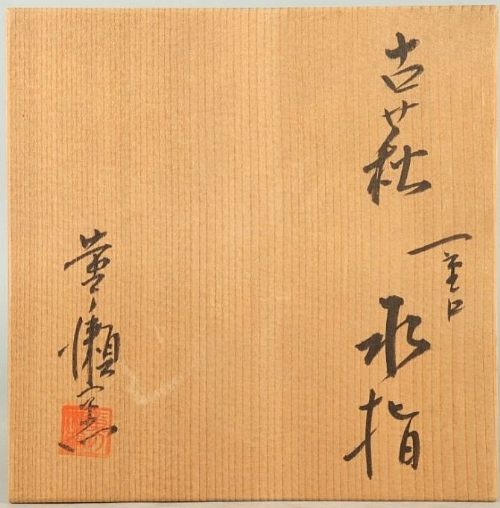 古萩
一重口
水指
瀬窯